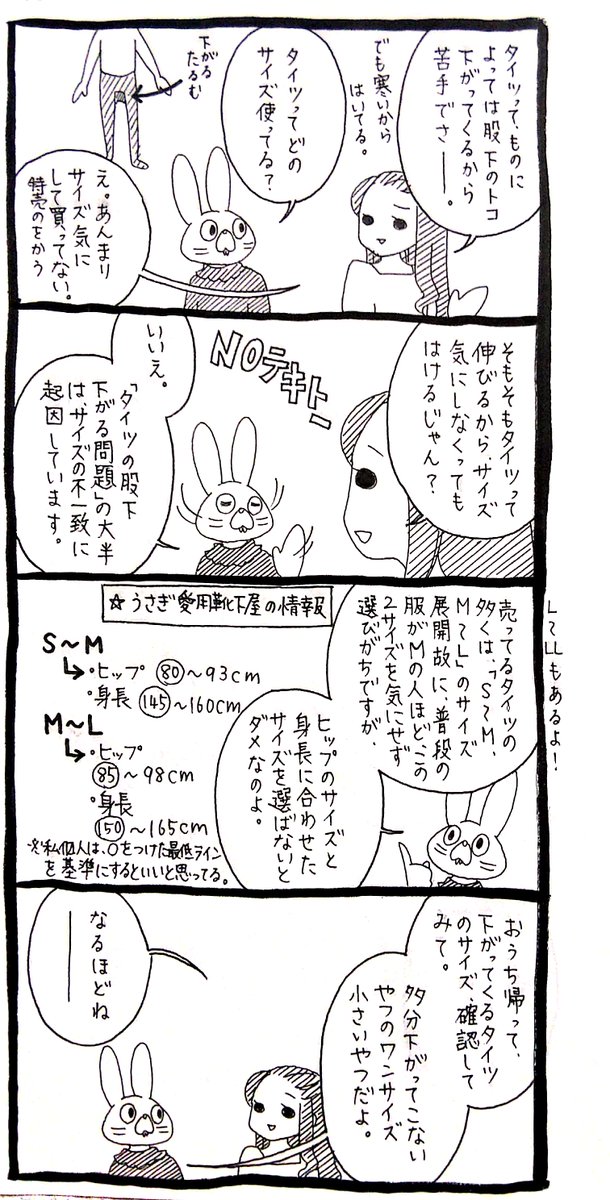 タイツって、ものに
よっては股下のトコ
下がってくるから
苦手でさー。
でも寒いから
はいてる。
タイツってどの
サイズ使ってる?
下がる
たるむ
え。あんまり
サイズ気に
して買ってない。
特売のをかう
そもそもタイツって
伸びるから、サイズ
気にしなくっても
はけるじゃん?
NOテキトー
いいえ。
「タイツの股下
下がる問題」の大半
は、サイズの不一致に
起因しています。
L〜LLもあるよ!
売ってるタイツの
多くは、「S〜M、
M〜L」のサイズ
展開故に、普段の
服がMの人ほど、この
2サイズを気にせず
選びがちですが、
ヒップのサイズと
身長に合わせた
サイズを選ばないと
ダメなのよ。
☆うさぎ愛用靴下屋の情報
S〜M
・ヒップ 80〜93cm
・身長 145〜160cm
M〜L
・ヒップ
85〜98cm
・身長
150〜165cm
※私個人は、○をつけた最低ライン
を基準にするといいと思ってる。
おうち帰って、
下がってくるタイツ
のサイズ、確認して
みて。
多分下がってこない
やつのワンサイズ
小さいやつだよ。
なるほどね
――